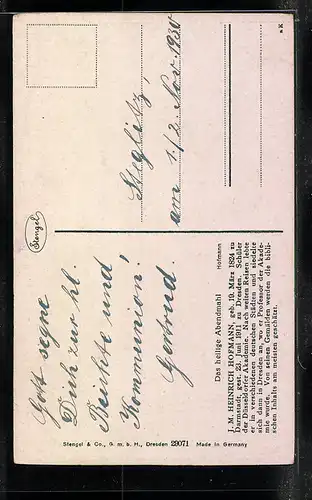 Gott segne
Dich zur hl.
Beichte und
Kommunion!
Gertrud.
Steglitz,
am 1./2. Nov. 1930
Stengel
Das heilige Abendmahl
Hofmann
J. M. HEINRICH HOFMANN, geb. 19. März 1824 zu
Darmstadt, gest. 23. Juni 1911 zu Dresden. Schüler
der Düsseldorfer Akademie. Nach weiten Reisen lebte
er in verschiedenen deutschen Städten und siedelte
sich dann in Dresden an, wo er Professor der Akade-
mie wurde. Von seinen Gemälden werden die bibli-
schen Inhalts am meisten geschätzt.
Stengel & Co., G. m. b. H., Dresden 29071 Made in Germany